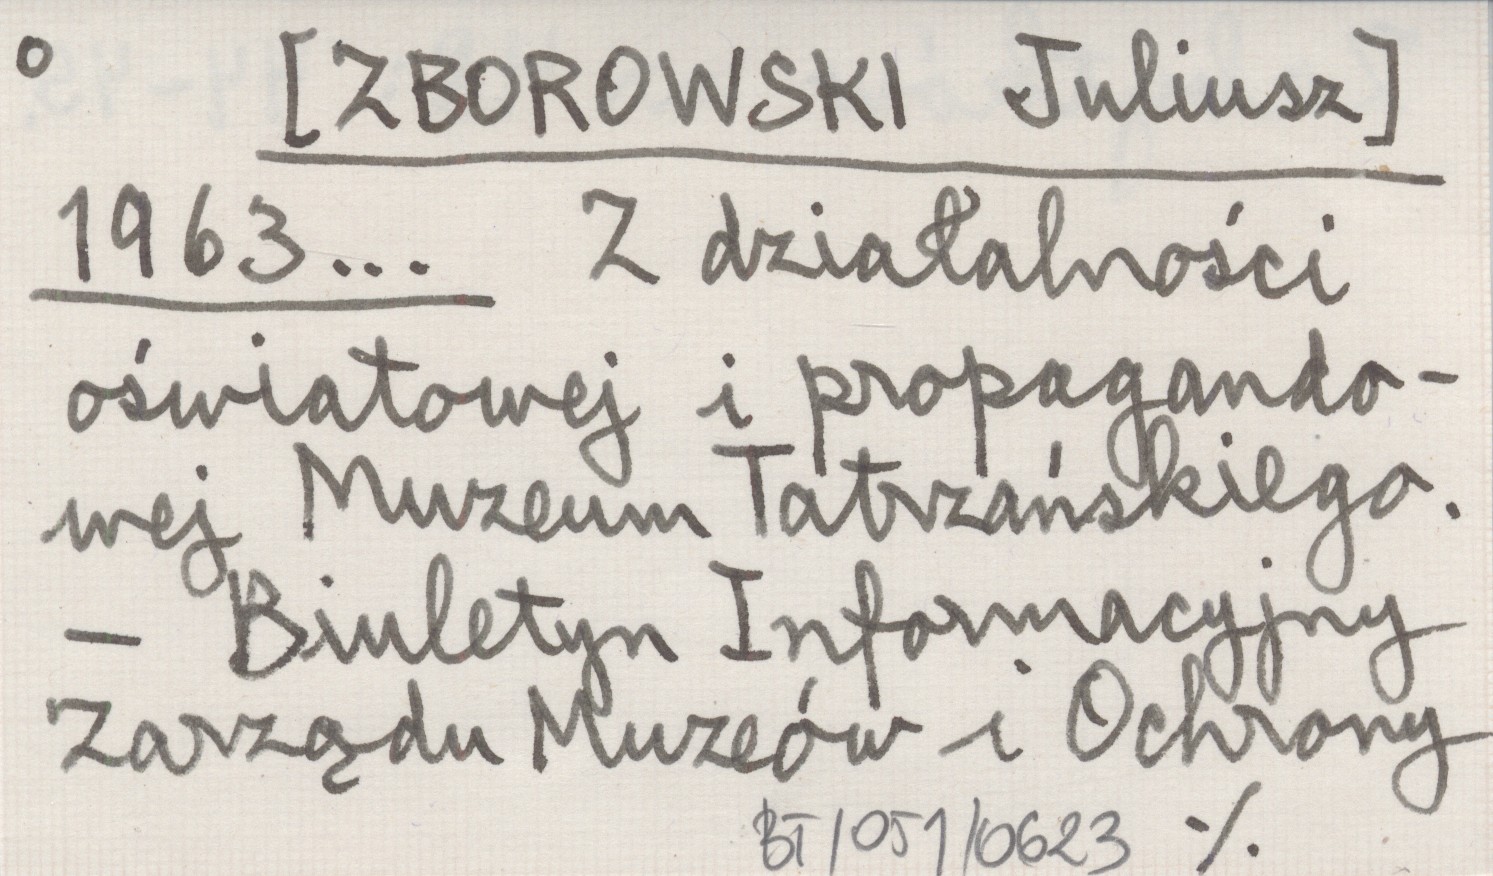 ° [ZBOROWSKI Juliusz]
1963... Z działalności
oświatowej i propagando-
wej Muzeum Tatrzańskiego.
– Biuletyn Informacyjny
Zarządu Muzeów i Ochrony
BT/051/0623 ·/.